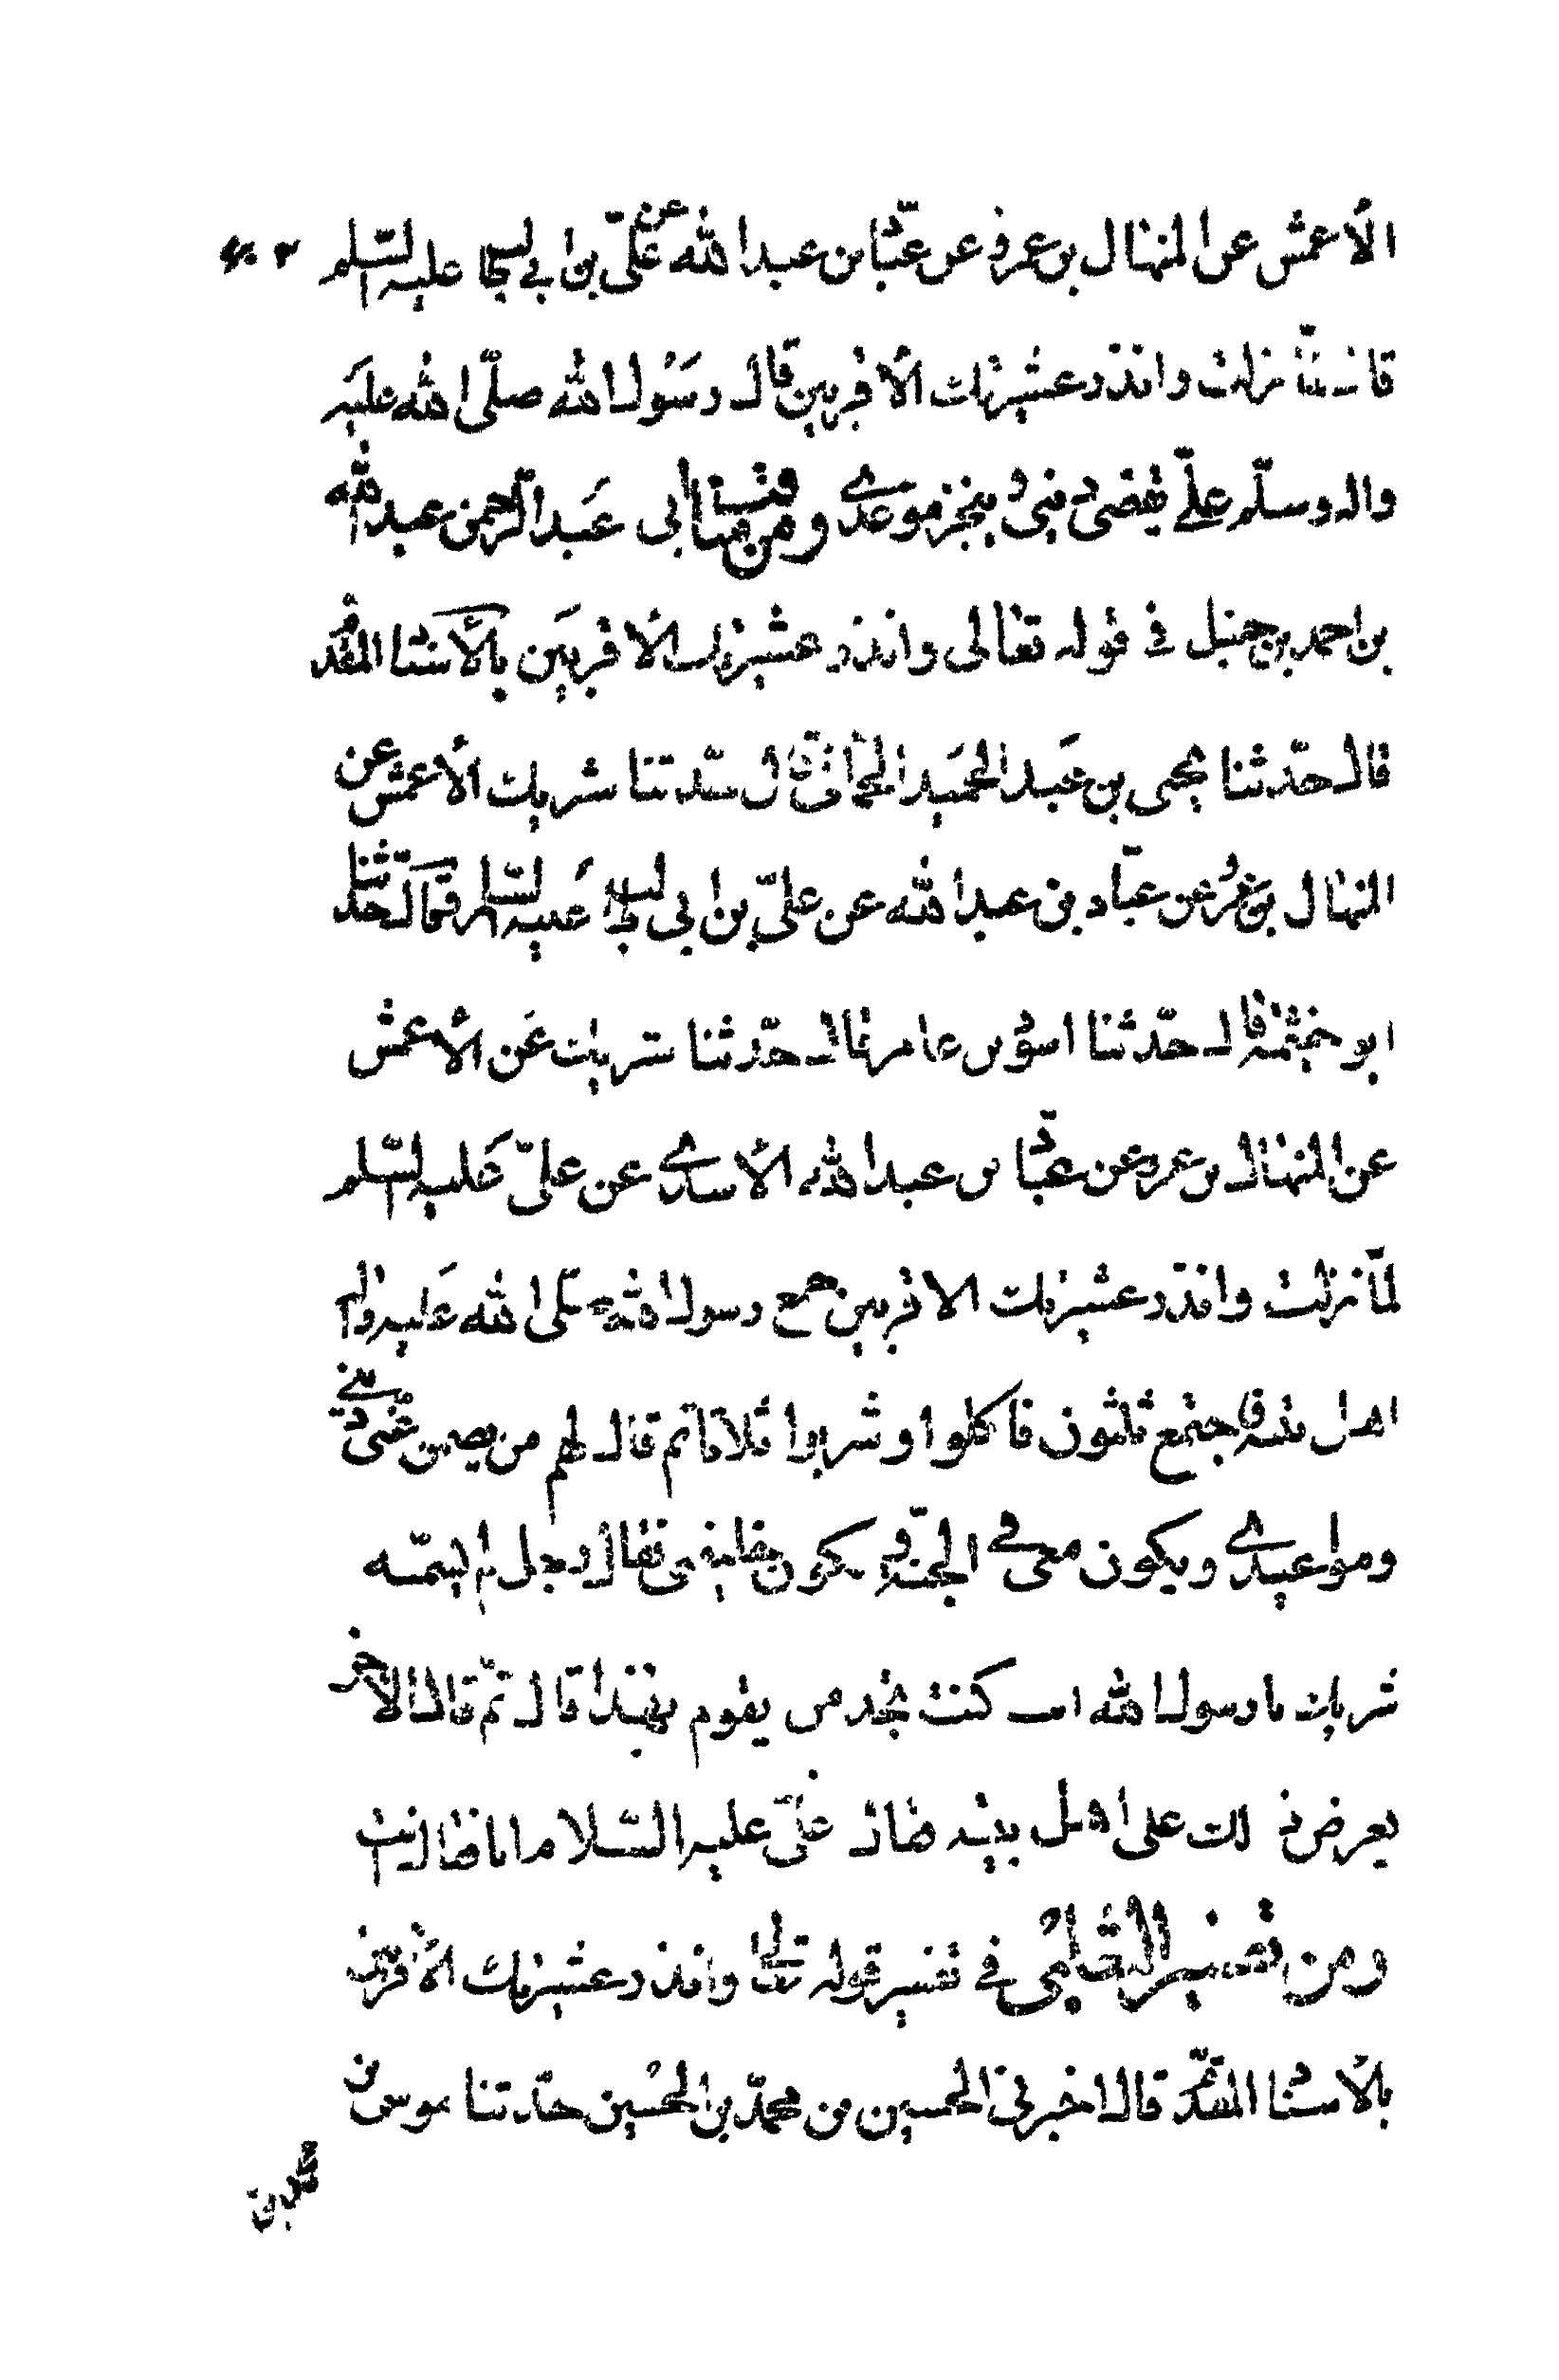 الأعمش عن المنهال بن عمرو عن عبّاد بن عبد الله عن علىّ بن ابي طالب عليه السّلم
قال لمّا نزلت وانذر عشيرتك الأقربين قال رسول الله صلّى الله عليه
واله وسلّم علىّ يقضى دينى وينجز موعدى ومن مسند ابى عبد الرّحمن عبد الله
بن احمد بن حنبل في قوله تعالى وانذر عشيرتك الاقربين بالأسناد المقدم
قال حدّثنا يحيى بن عبد الحميد الحماني قال حدّثنا شريك الأعمش عن
المنهال بن عمرو عن عبّاد بن عبد الله عن علىّ بن ابى طالب عليه السّلم وقال حدّثنا
ابو خيثمة قال حدّثنا اسود بن عامر قال حدّثنا شريك عن الأعمش
عن المنهال بن عمرو عن عبّاد بن عبد الله الأسدى عن علىّ عليه السّلم
لمّا نزلت وانذر عشيرتك الاقربين جمع رسول الله صلّى الله عليه واله
اهل بيته فاجتمع ثلثون فاكلوا وشربوا ثلاثا ثم قال لهم من يضمن عنّى دينى
ومواعيدى ويكون معى في الجنّة ويكون خليفتى فقال رجل لم يسمّه
شريك يا رسول الله انت كنت تجد من يقوم بهذا قال ثمّ قال الأخر
يعرض ذلك على اهل بيته فقال علىّ عليه السّلام انا فقال انت
ومن تفسير الثعلبى في تفسير قوله تعالى وانذر عشيرتك الأقربين
بالأسناد المقدّم قال اخبرني الحسين بن محمّد بن الحسين حدّثنا موسى بن
محمد بن